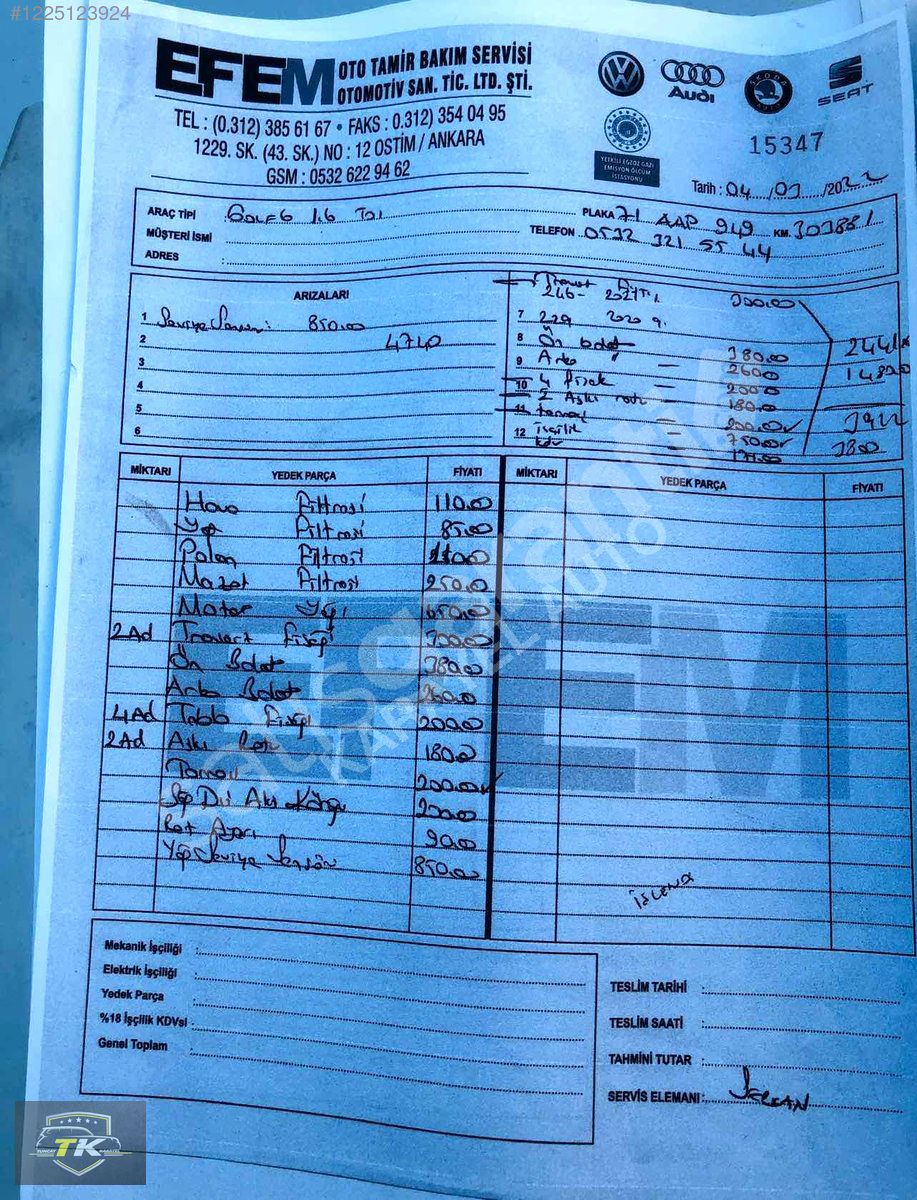 #1225123924
EFEM OTO TAMİR BAKIM SERVİSİ
OTOMOTİV SAN. TİC. LTD. ŞTİ.
TEL : (0.312) 385 61 67 • FAKS : 0.312) 354 04 95
1229. SK. (43. SK.) NO : 12 OSTİM / ANKARA
GSM : 0532 622 94 62
Audi
SKODA
SEAT
YETKİLİ EGZOZ GAZI
EMİSYON ÖLÇÜM
İSTASYONU
15347
Tarih : 04 /01 /2022
ARAÇ TİPİ : GOLF 6 1.6 TDI
PLAKA 71 AAP 949 KM. 303881
MÜŞTERİ İSMİ :
TELEFON 0532 321 55 44
ADRES :
ARIZALARI
1 Seviye Sensörü: 850.00
2 4740
3
4
5
6
246- 300.00
7 229
8 Ön balata 380.00 2441
9 Arka " 260.00 1480.0
10 4 fişek 200.0
2 Askı rotu 180.0
11 200.00 3922
12 işçilik 750.00 3800
kdv
MİKTARI YEDEK PARÇA FİYATI
Hava Filtresi 110.00
Yağ Filtresi 85.00
Polen Filtresi 110.00
Mazot Filtresi 250.00
Motor Yağı 650.00
2 Ad Travers Fişeği 300.00
Ön Balata 380.00
Arka Balata 260.00
4 Ad Tabla Fişeği 200.00
2 Ad Askı Rotu 180.0
200.00
Sağ Dış Aks Körüğü 200.00
Rot Ayarı 90.00
Yağ Seviye Sensörü 850.00
MİKTARI YEDEK PARÇA FİYATI
İŞLENDİ
EFEM
Mekanik İşçiliği :
Elektrik İşçiliği :
Yedek Parça :
%18 İşçilik KDVsi :
Genel Toplam :
TESLİM TARİHİ :
TESLİM SAATİ :
TAHMİNİ TUTAR :
SERVİS ELEMANI : SERKAN
TK